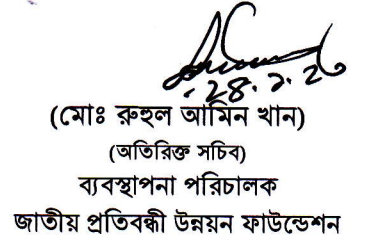 ২৪.২.২৬
(মোঃ রুহুল আমিন খান)
(অতিরিক্ত সচিব)
ব্যবস্থাপনা পরিচালক
জাতীয় প্রতিবন্ধী উন্নয়ন ফাউন্ডেশন